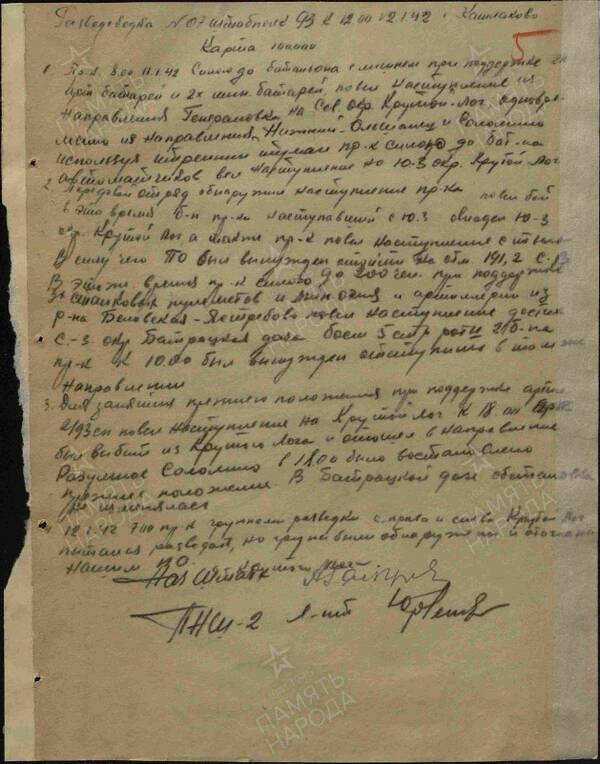 Разведсводка № 07 штаб 93 к 12.00 12.1.42 г. Кашлаково
5
Карта 100000
1. Пр-к 8.00 11.1.42 Силою до батальона с при поддержке
батарей и 2х мин. батарей, повел наступление из
направления Генераловка, на Сев. окр. Крутой-Лог, одновре-
менно из направления Нижний-Ольшанец и Соломино
используя утренний туман пр-к силою до бат-на
автоматчиков вел наступление на Ю-З окр. Крутой Лог
2. Передовой отряд обнаружил наступление пр-ка повел бой
в это время б-н пр-ка наступавший с Ю.З овладел Ю-З
окр. Крутой Лог, а также пр-к повел наступление с тыла
В силу чего ПО был вынужден отойти на выс. 191,2 С-В
В это же время пр-к силою до 200 чел. при поддержке
3х станковых пулеметов и мин. огня и артиллерии из
р-на Беловская-Ястребово повел наступление достиг
С.-З. окр Батрацкая дача боем 5 стр. роты 2 б-на
пр-к к 10.00 был вынужден отступить в том же
направлении
3. Для занятия прежнего положения при поддержке арт.
2/93 сп повел наступление на Крутой Лог к 18 00 пр-к
был выбит из Крутого Лога и отошел в направление
Разумное Соломино к 18.00 было восстановлено
прежнее положение В Батрацкой даче обстановка
не изменилась
4. 12.1.42 7.00 пр-к группами разведки справа и слева Крутой Лог
пытался разведать, но группы были обнаружены и отогнаны
нашим ПО.
Нач штаба
ПНШ-2 л-нт
ПАМЯТЬ
НАРОДА